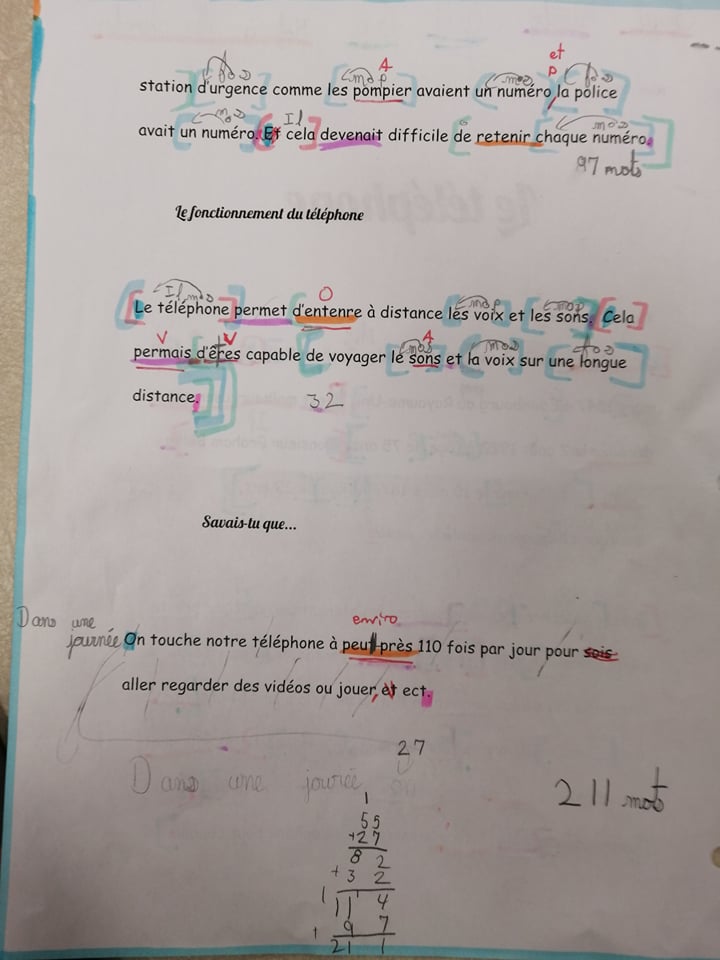 et
A p
station d'urgence comme les pompier avaient un numéro la police
Il
avait un numéro. Et cela devenait difficile de retenir chaque numéro.
97 mots
Le fonctionnement du téléphone
O
Le téléphone permet d'entenre à distance les voix et les sons. Cela
V V A
permais d'êtres capable de voyager le sons et la voix sur une longue
distance. 32
Savais-tu que...
Dans une enviro
journée On touche notre téléphone à peut près 110 fois par jour pour sois
aller regarder des vidéos ou jouer, et ect.
27
Dans une journée on
211 mot
1
55
+27
82
+32
1
114
+ 97
211